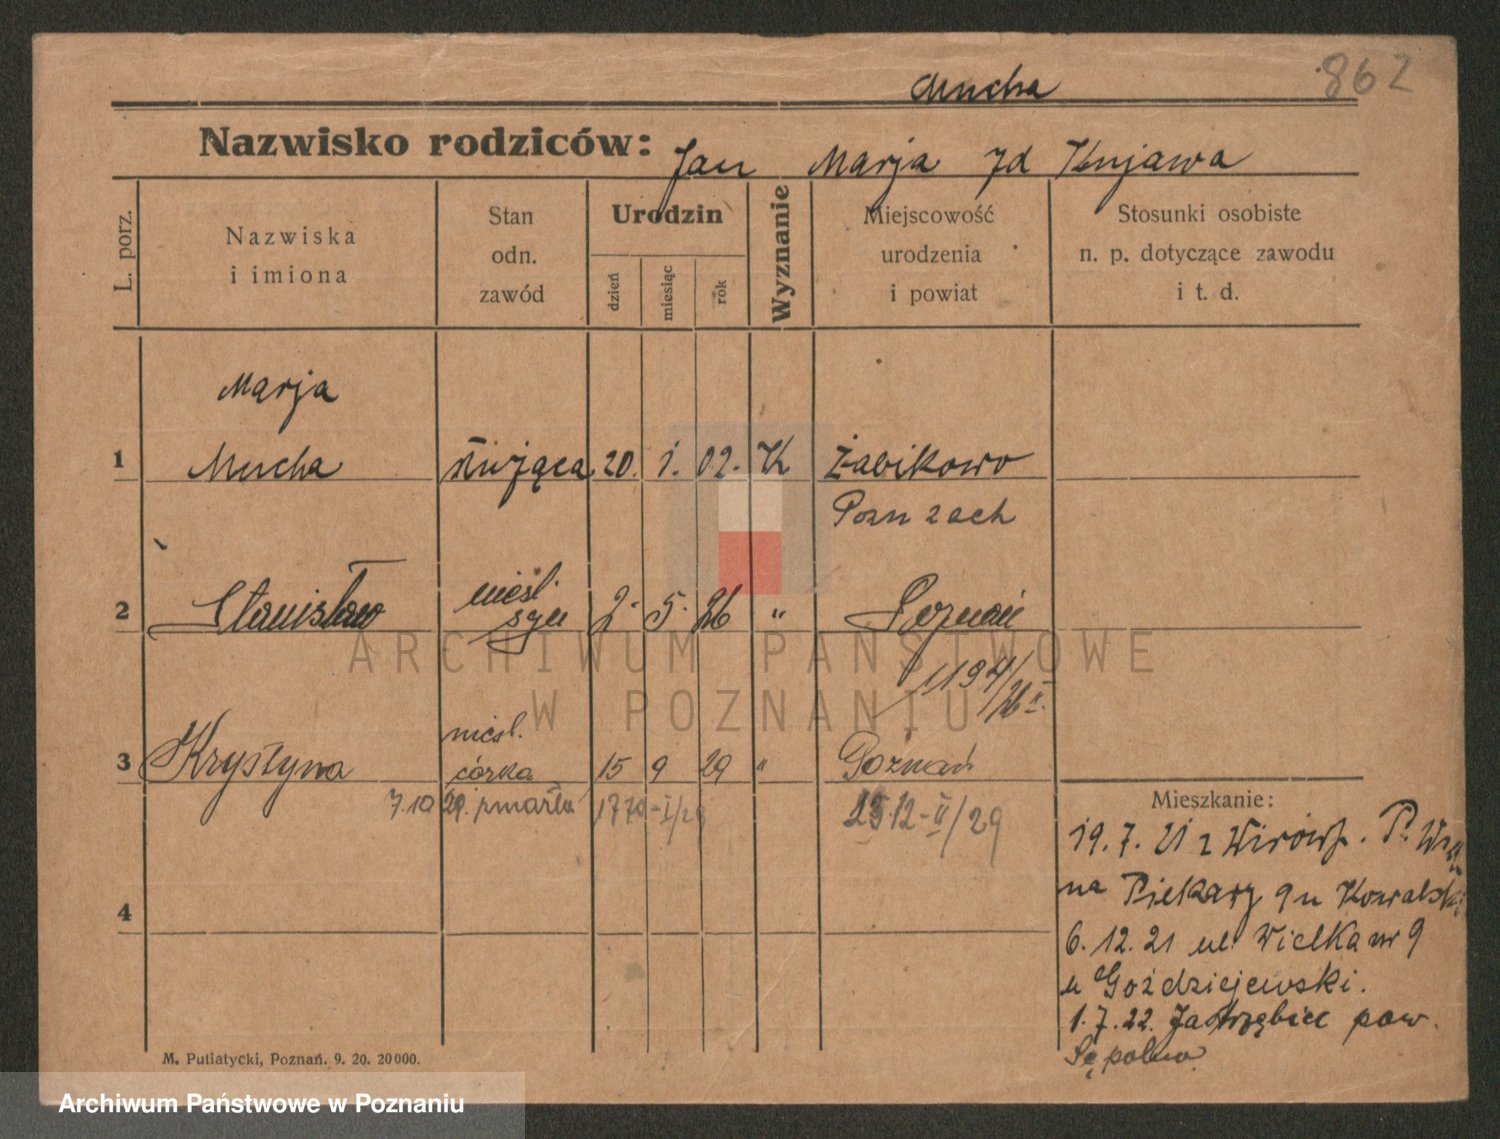 862
Mucha
Nazwisko rodziców: Jan Marja zd Kujawa
L. porz.
Nazwiska
i imiona
Stan
odn.
zawód
Urodzin
dzień
miesiąc
rok
Wyznanie
Miejscowość
urodzenia
i powiat
Stosunki osobiste
n. p. dotyczące zawodu
i t. d.
Marja
1 Mucha służąca 20. 1. 02. K Żabikowo
Pozn zach
2 Stanisław nieśl. syn 2. 5. 26 " Poznań
1194/26 II.
3 Krystyna nieśl. córka 15 9 29 " Poznań
7.10 29. zmarła 1770-I/29 2512-II/29
4
Mieszkanie:
19. 7. 21 z P.
na Piekary 9 u Kowalski
6. 12. 21 ul. Wielka nr 9
u Goździejewski.
1. 7. 22. Jastrzębiec pow.
Sępolno
M. Putiatycki, Poznań. 9. 20. 20000.
ARCHIWUM PAŃSTWOWE
W POZNANIU
Archiwum Państwowe w Poznaniu